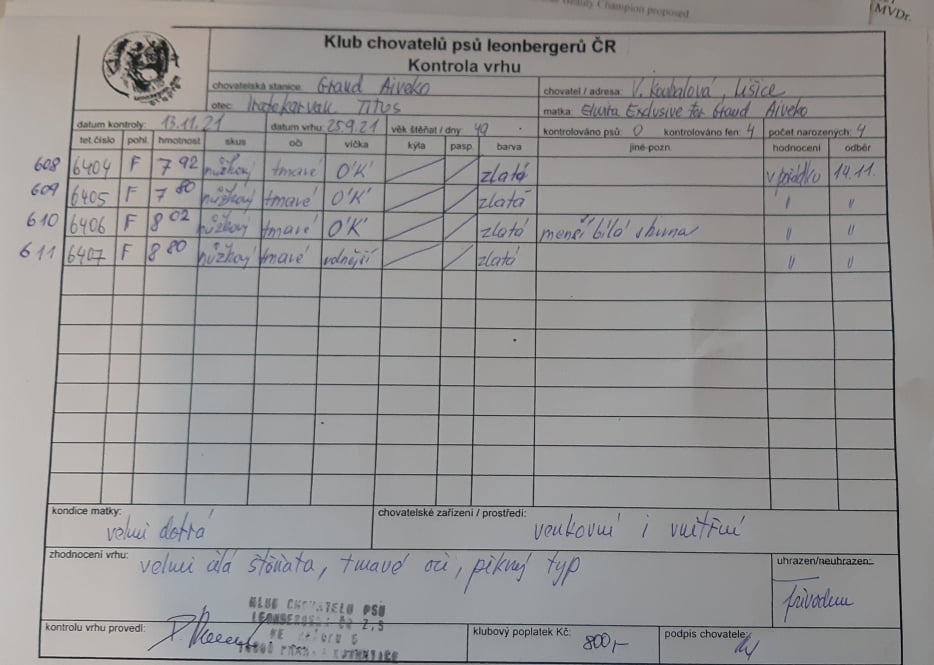 Beauty Champion proposed
MVDr.
Klub chovatelů psů leonbergerů ČR
Kontrola vrhu
chovatelská stanice: Grand Aiveko
chovatel / adresa: V. Koubalová, Lišice
otec: Titus
matka: Exclusive for Grand Aiveko
datum kontroly: 13.11.21 datum vrhu: 25.9.21 věk štěňat / dny: 49 kontrolováno psů: 0 kontrolováno fen: 4 počet narozených: 4
tet.číslo pohl. hmotnost skus oči víčka kýla pasp. barva jiné-pozn. hodnocení odběr
608 6404 F 7 92 nůžkový tmavé O'K' zlatá v pořádku 14.11.
609 6405 F 7 80 nůžkový tmavé O'K' zlatá " "
610 6406 F 8 02 nůžkový tmavé O'K' zlatá menší bílá skvrna " "
611 6407 F 8 80 nůžkový tmavé volnější zlatá " "
kondice matky: velmi dobrá
chovatelské zařízení / prostředí: venkovní i vnitřní
zhodnocení vrhu: velmi štěňata, tmavé oči, pěkný typ
uhrazen/neuhrazen:
převodem
kontrolu vrhu provedl:
KLUB CHOVATELŮ PSŮ
klubový poplatek Kč: 800,-
podpis chovatele: